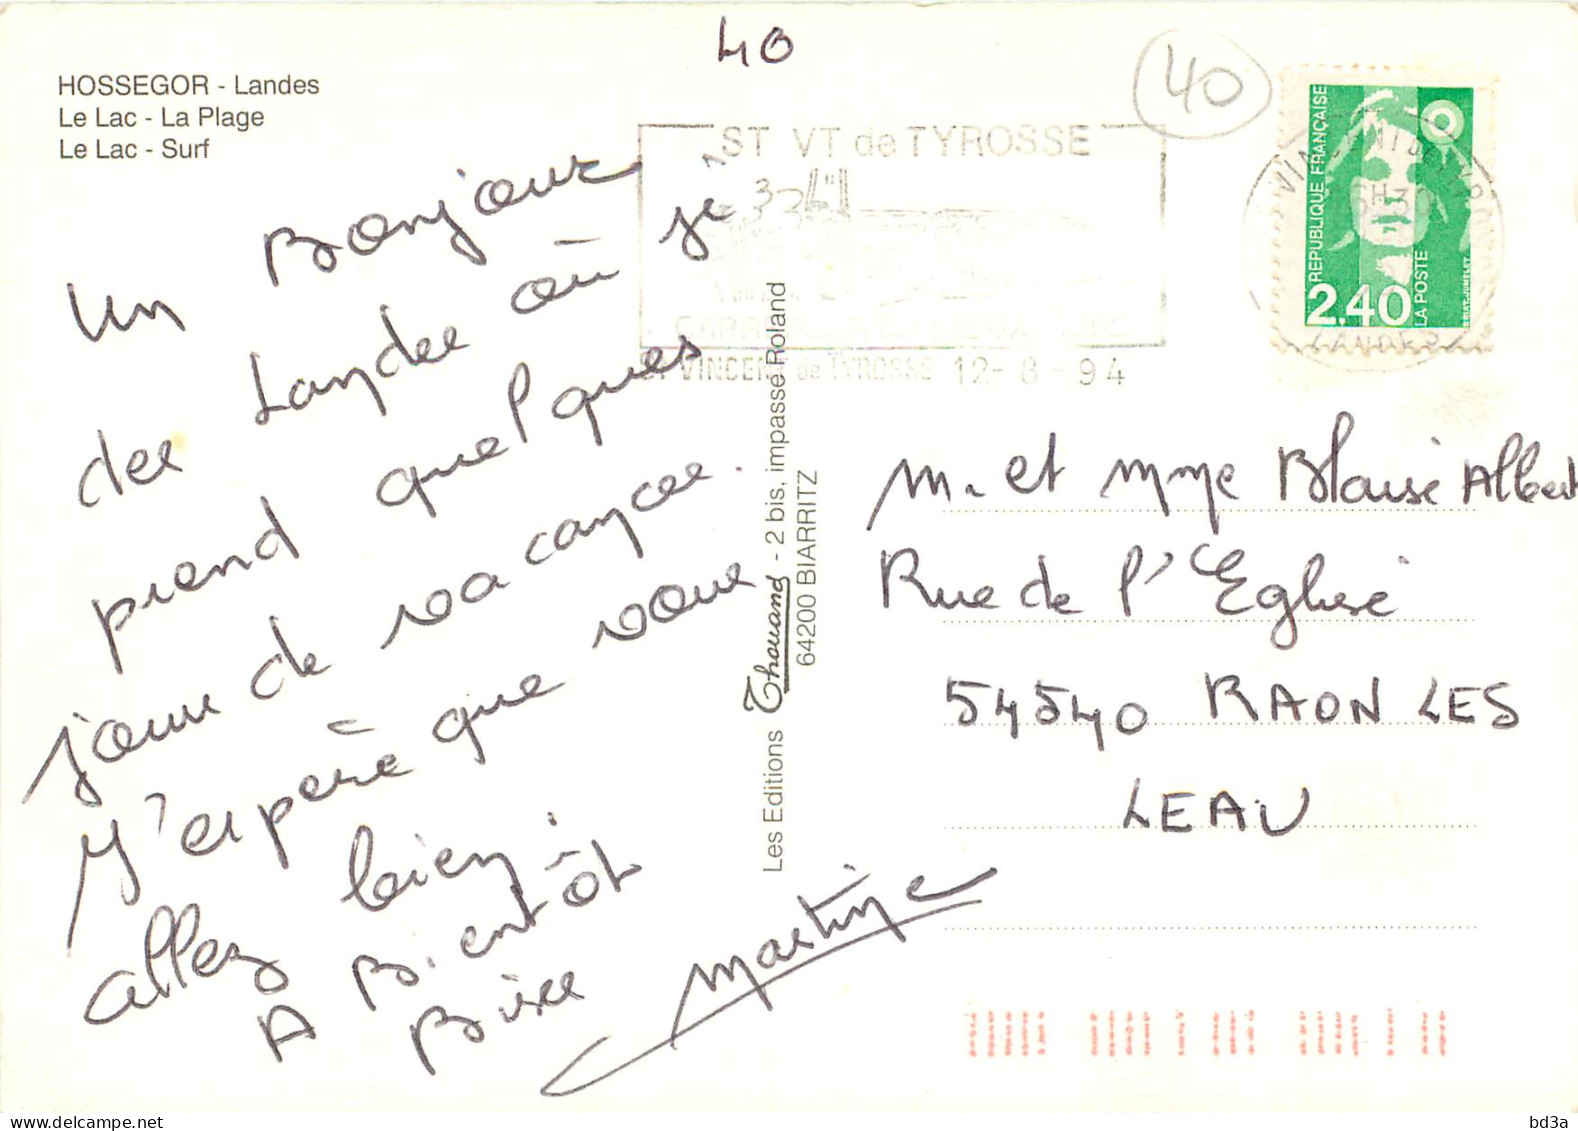 HOSSEGOR - Landes
Le Lac - La Plage
Le Lac - Surf
40
40
ST VT de TYROSSE
ST VINCENT de TYROSSE 12-8-94
REPUBLIQUE FRANÇAISE
2,40
LA POSTE
un Bonjour
des Landes où je
prend quelques
jours de vacances.
J'espère que vous
allez bien.
A Bientôt
Bises
Martine
Les Editions Thouand - 2 bis, impasse Roland
64200 BIARRITZ
M. et Mme Blaise Albert
Rue de l'Eglise
54540 RAON LES
LEAU
bd3a